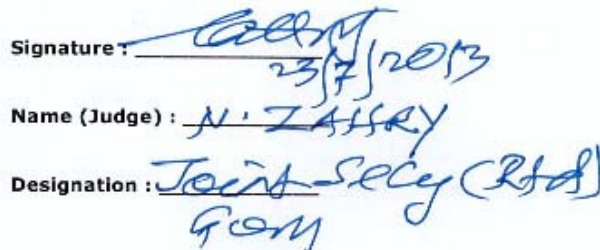 Signature :
23/7/2013
Name (Judge) : N. ZAFFRY
Designation : Joint Secy (Rtd)
GOM